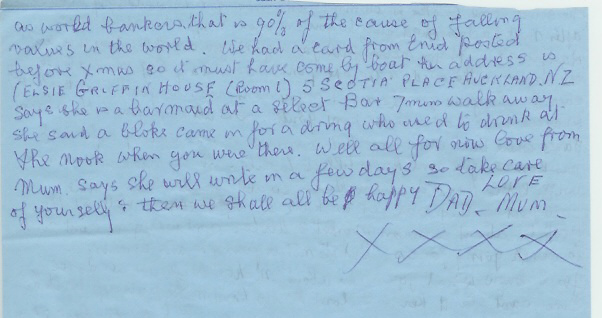 as world bankers, that is 90% of the cause of falling
values in the world. We had a card from Enid posted
before Xmas so it must have come by boat her address is
(ELSIE GRIFFIN HOUSE (Room 1) 5 SCOTIA PLACE AUCKLAND. NZ
Says she is a barmaid at a select Bar 7 mins walk away
she said a bloke came in for a dring who used to drink at
the nook when you were there. Well all for now love from
Mum. Says she will write in a few days so take care
of yourself & then we shall all be happy DAD. LOVE MUM.
X X X X